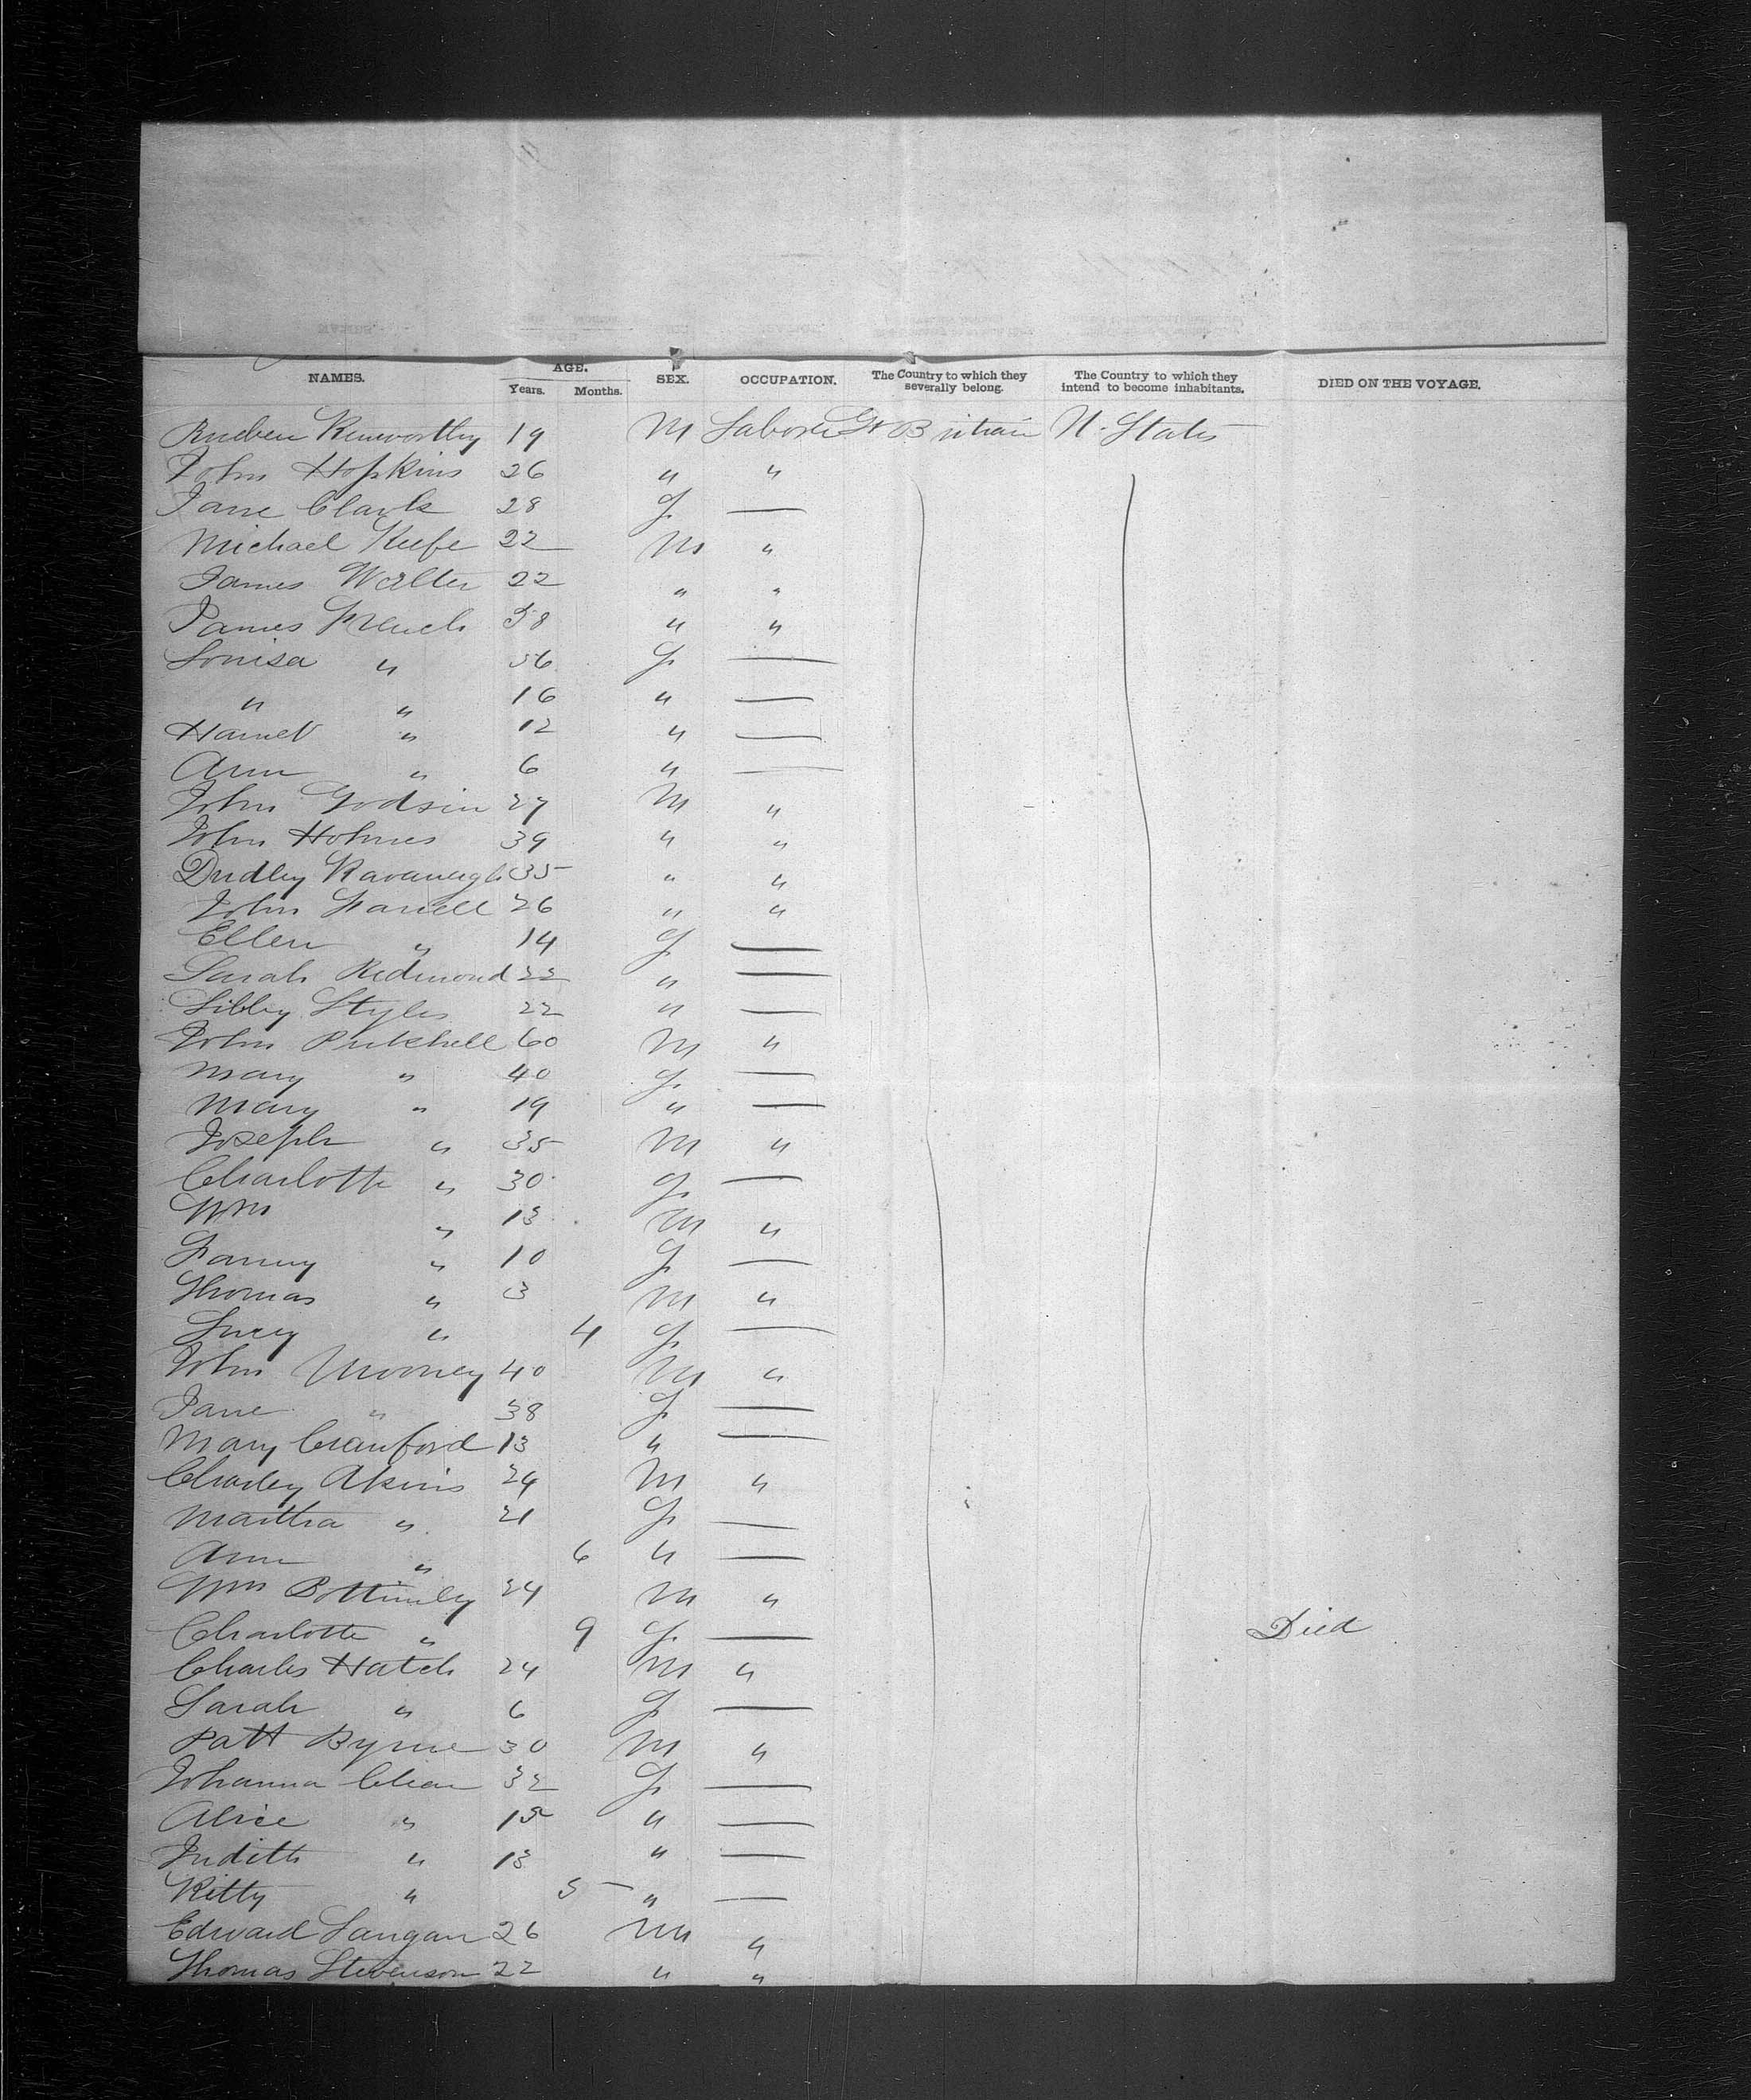 NAMES. AGE. SEX. OCCUPATION. The Country to which they severally belong. The Country to which they intend to become inhabitants. DIED ON THE VOYAGE.
Years. Months.
Rueben Kenworthy 19 M Laborer Gt Britain U. States
John Hopkins 26 " "
Jane Clark 28 F —
Michael Keefe 22 M "
James Walter 22 " "
James French 38 " "
Louisa " 36 F —
" " 16 " —
Harriet " 12 " —
Ann " 6 " —
John Godsin 27 M "
John Holmes 39 " "
Dudley Kavanagh 35 " "
John Farrell 26 " "
Ellen " 14 F —
Sarah Redmond 22 " —
Libby Styles 22 " —
John 60 M "
Mary " 40 F —
Mary " 19 " —
Joseph " 35 M "
Charlotte " 30 F —
Wm " 13 M "
Fanny " 10 F —
Thomas " 3 M "
Lucy " 4 F —
John Mooney 40 M "
Jane " 38 F —
Mary Crawford 13 " —
Charley Akins 24 M "
Martha " 21 F —
Ann " 6 " —
Wm Bottimley 24 M "
Charlotte " 9 F — Died
Charles Hatch 24 M "
Sarah " 6 F —
Patt Byrne 30 M "
Johanna 32 F —
Alice " 15 " —
Judith " 13 " —
Kitty " 5 " —
Edward Langan 26 M "
Thomas Stevenson 22 " "